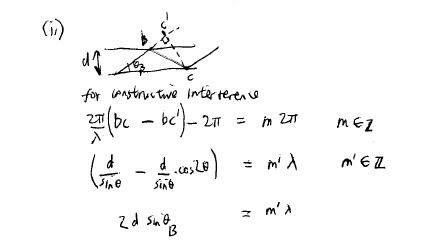 (ii)
C'
B
d
θB
C
for constructive interference
2π/λ (bc − bc') − 2π = m 2π m ∈ ℤ
(d/sinθ − d/sinθ · cos2θ) = m' λ m' ∈ ℤ
2d sinθB = m' λ